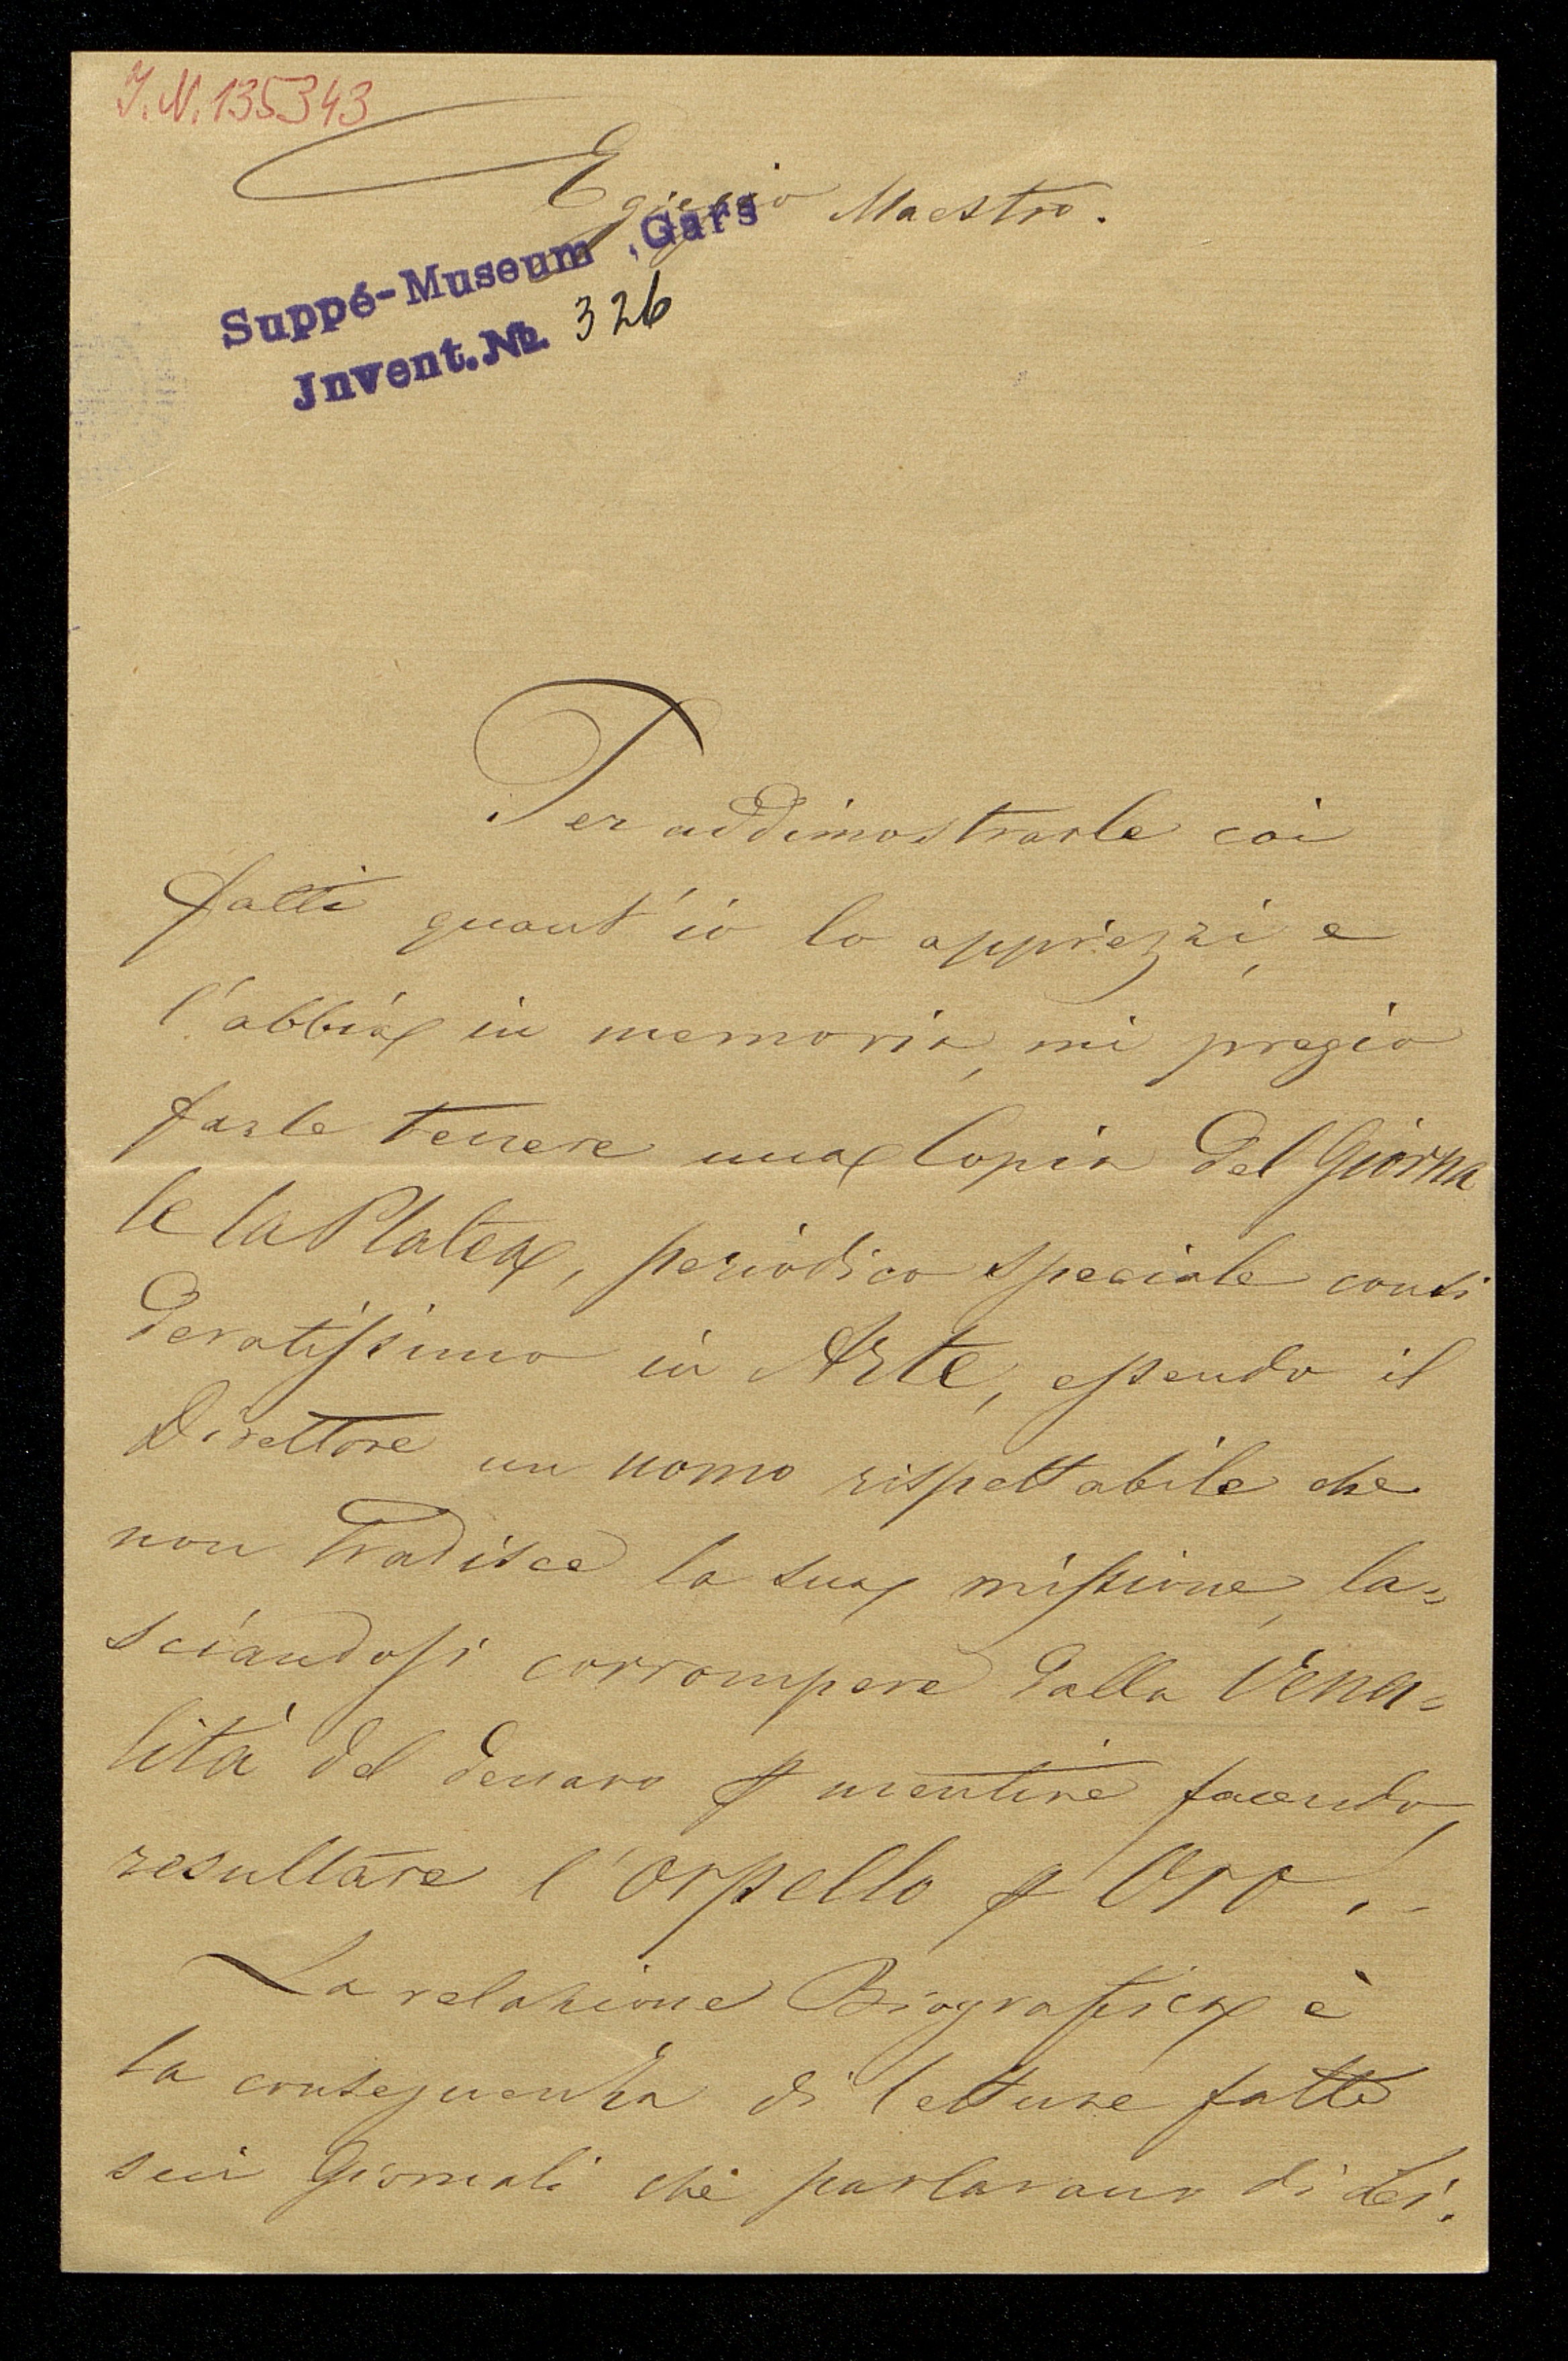 J.N. 135343
Egregio Maestro.
Suppé-Museum, Gars
Jnvent. No. 326
Per addimostrarle coi
fatti quant'io lo apprezzi, e
l'abbia in memoria, mi pregio
farle tenere una Copia del Giorna
le la Platea, periodico speciale consi
deratissimo in Arte, essendo il
Direttore un uomo rispettabile che
non tradisce la sua missione, la=
sciandosi corrompere dalla Vena=
lità del denaro p mentire facendo,
resultare l'Orpello p Oro!.-
La relazione Biografica è
la conseguenza di letture fatte
sui Giornali che parlavano di Lei.